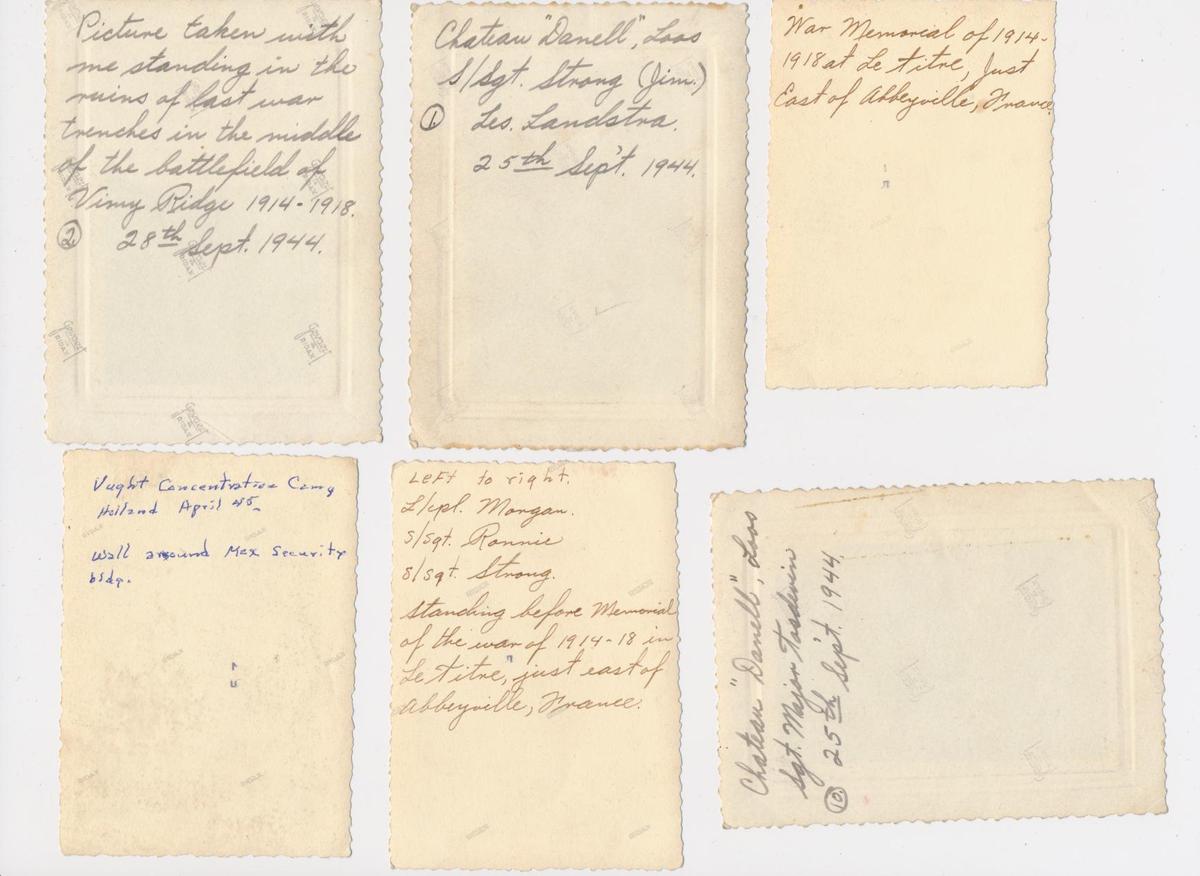 Picture taken with
me standing in the
ruins of last war
trenches in the middle
of the battlefield of
Vimy Ridge 1914-1918.
② 28th Sept. 1944.
Chateau "Danell", Loos
S/Sgt. Strong (Jim.)
① Les. Landstra.
25th Sep't. 1944.
War Memorial of 1914-
1918 at Le titre, Just
East of Abbeyville, France.
Vught Concentration Camp
Holland April 45
Wall around Max Security
bldg.
Left to right.
L/cpl. Morgan.
S/Sgt. Ronnie
S/Sgt. Strong.
Standing before Memorial
of the war of 1914-18 in
Le titre," just east of
Abbeyville, France.
Chateau "Danell", Loos
Sgt. Major
⑩ 25th Sept. 1944.